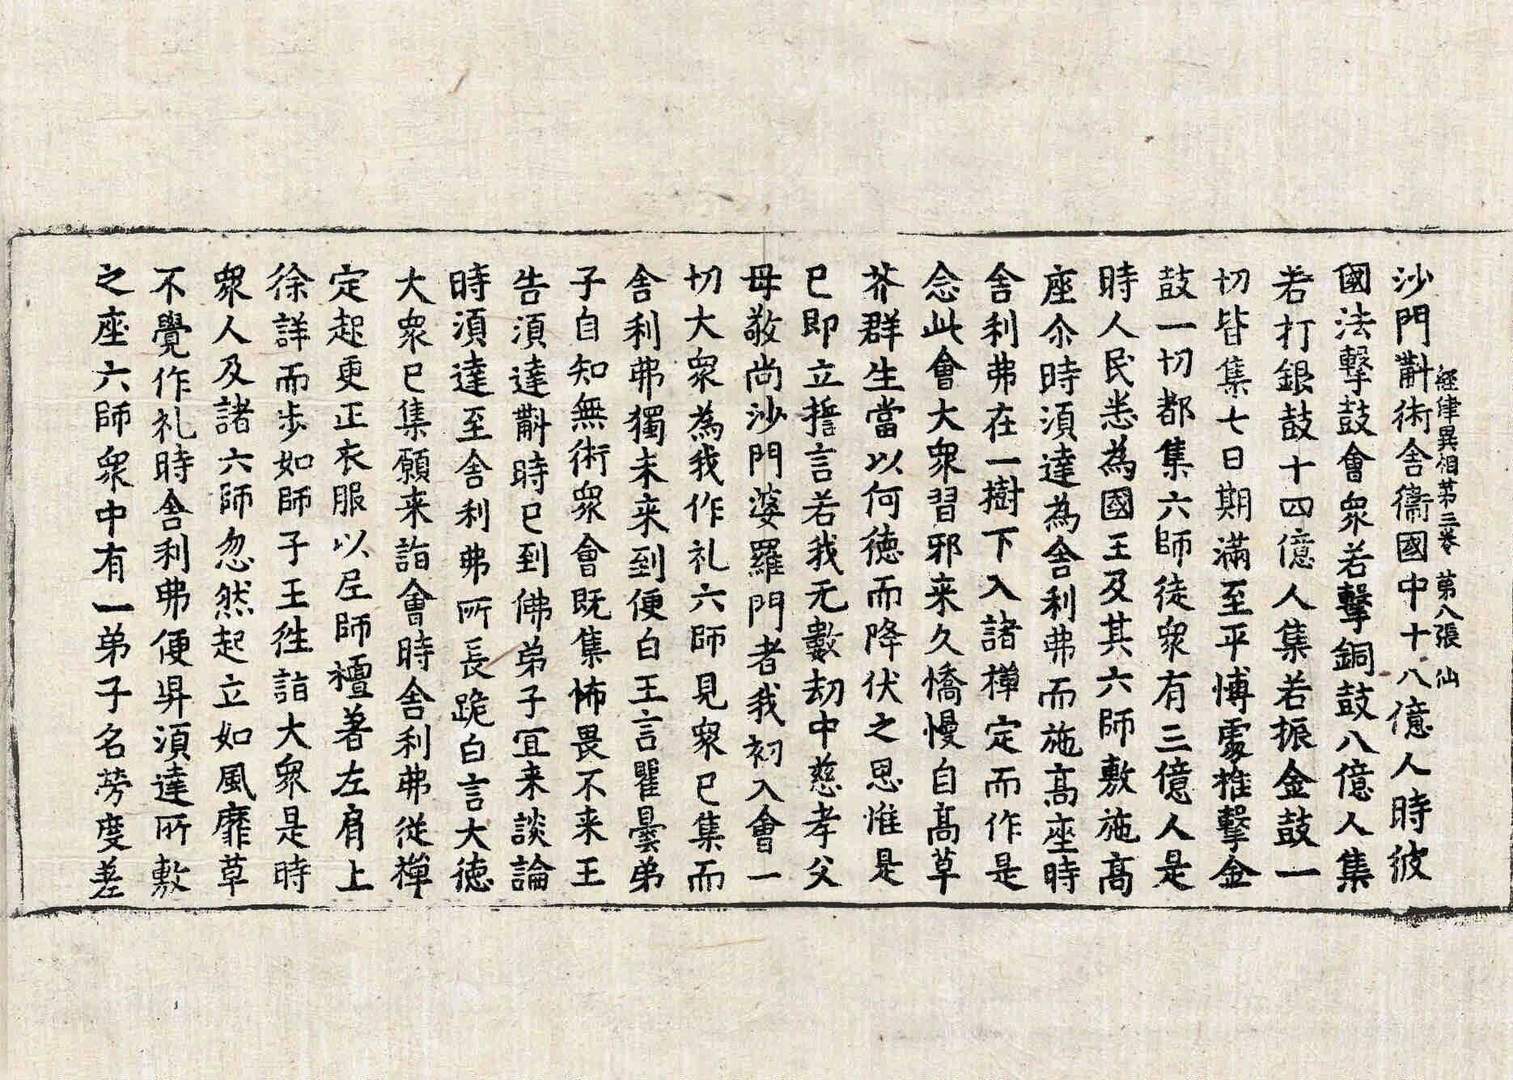 經律異相苐三卷　第八張　仙
沙門㪷術舍衞國中十八億人時彼
國法擊鼓會衆若擊銅鼓八億人集
若打銀鼓十四億人集若振金鼓一
切皆集七日期滿至平博處推擊金
鼓一切都集六師徒衆有三億人是
時人民悉為國王及其六師敷施髙
座尒時湏達為舍利弗而施髙座時
舍利弗在一樹下入諸禪定而作是
念此會大衆習邪来久憍慢自髙草
芥群生當以何徳而降伏之思惟是
已即立誓言若我无數劫中慈孝父
母敬尚沙門婆羅門者我初入會一
切大衆為我作礼六師見衆已集而
舍利弗獨未来到便白王言瞿曇弟
子自知無術衆會既集怖畏不来王
告湏達㪷時已到佛弟子冝来談論
時湏達至舍利弗所長跪白言大徳
大衆已集願来詣會時舍利弗従禪
定起更正衣服以尼師檀著左肩上
徐詳而歩如師子王徃詣大衆是時
衆人及諸六師忽然起立如風靡草
不覺作礼時舍利弗便昇湏達所敷
之座六師衆中有一弟子名勞度差